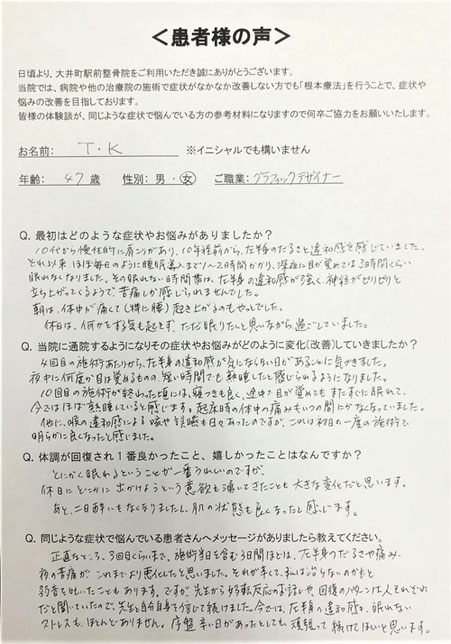 ＜患者様の声＞
日頃より、大井町駅前整骨院をご利用いただき誠にありがとうございます。
当院では、病院や他の治療院の施術で症状がなかなか改善しない方でも「根本療法」を行うことで、症状や
悩みの改善を目指しております。
皆様の体験談が、同じような症状で悩んでいる方の参考材料になりますので何卒ご協力をお願いいたします。
お名前： T・K ※イニシャルでも構いません
年齢： 47 歳 性別：男・女 ご職業：グラフィックデザイナー
Q. 最初はどのような症状やお悩みがありましたか？
10代から慢性的に肩こりがあり、10年程前から、左半身のだるさと違和感を感じていました。
それ以来、ほぼ毎日のように睡眠導入まで1〜2時間かかり、深夜に目が覚めては3時間くらい
眠れなくなりました。その眠れない時間帯は、左半身の違和感が強く、神経がピリピリと
立ち上がってくるようで、苦痛しか感じられませんでした。
朝は、体中が痛くて(特に腰)起き上がるのもやっとでした。
休日は、何かをする気も起きず、ただ眠りたいと思いながら過ごしていました。
Q. 当院に通院するようになりその症状やお悩みがどのように変化（改善）していきましたか？
4回目の施術あたりから、左半身の違和感が気にならない日があることに気づきました。
夜中に何度か目は覚めるものの、短い時間でも熟睡したと感じられるようになりました。
10回目の施術が終わった頃には、寝つきも良く、途中で目が覚めてもまたすぐに眠れて、
今ではほぼ熟睡していると感じます。起床時の体中の痛みもいつの間にかなくなっていました。
他に、喉の違和感による咳や咳払いも日々あったのですが、これは初日の一度の施術で
明らかに良くなったと感じました。
Q. 体調が回復され１番良かったこと、嬉しかったことはなんですか？
とにかく眠れるということが一番うれしいのですが、
休日にどこかに出かけようという意欲も湧いてきたことも大きな変化だと思います。
あと、二日酔いもなくなりましたし、肌の状態も良くなったと感じます。
Q. 同じような症状で悩んでいる患者さんへメッセージがありましたら教えてください。
正直なところ、3回目くらいまで、施術当日を含む3日間ほどは、左半身のだるさや痛み、
夜の苦痛が、これまでより悪化したと思いました。それが辛くて、私は治らないのかもと
弱音を吐いたこともあります。ですが、先生から好転反応のお話しや、回復のパターンは人それぞれ
だと聞いていたので、先生と自分自身を信じて続けました。今では、左半身の違和感も、眠れない
ストレスも、ほとんどありません。序盤辛い日があったとしても、頑張って続けてほしいと思います。